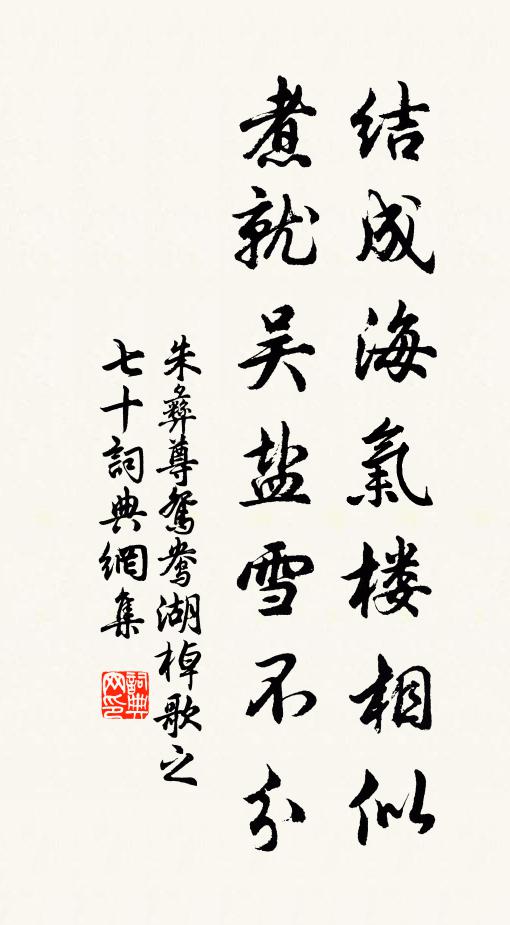 结成海氣楼相似
煮就吴盐雪不分
朱彝尊鸳鸯湖棹歌之
七十詞典網集
詞典网印